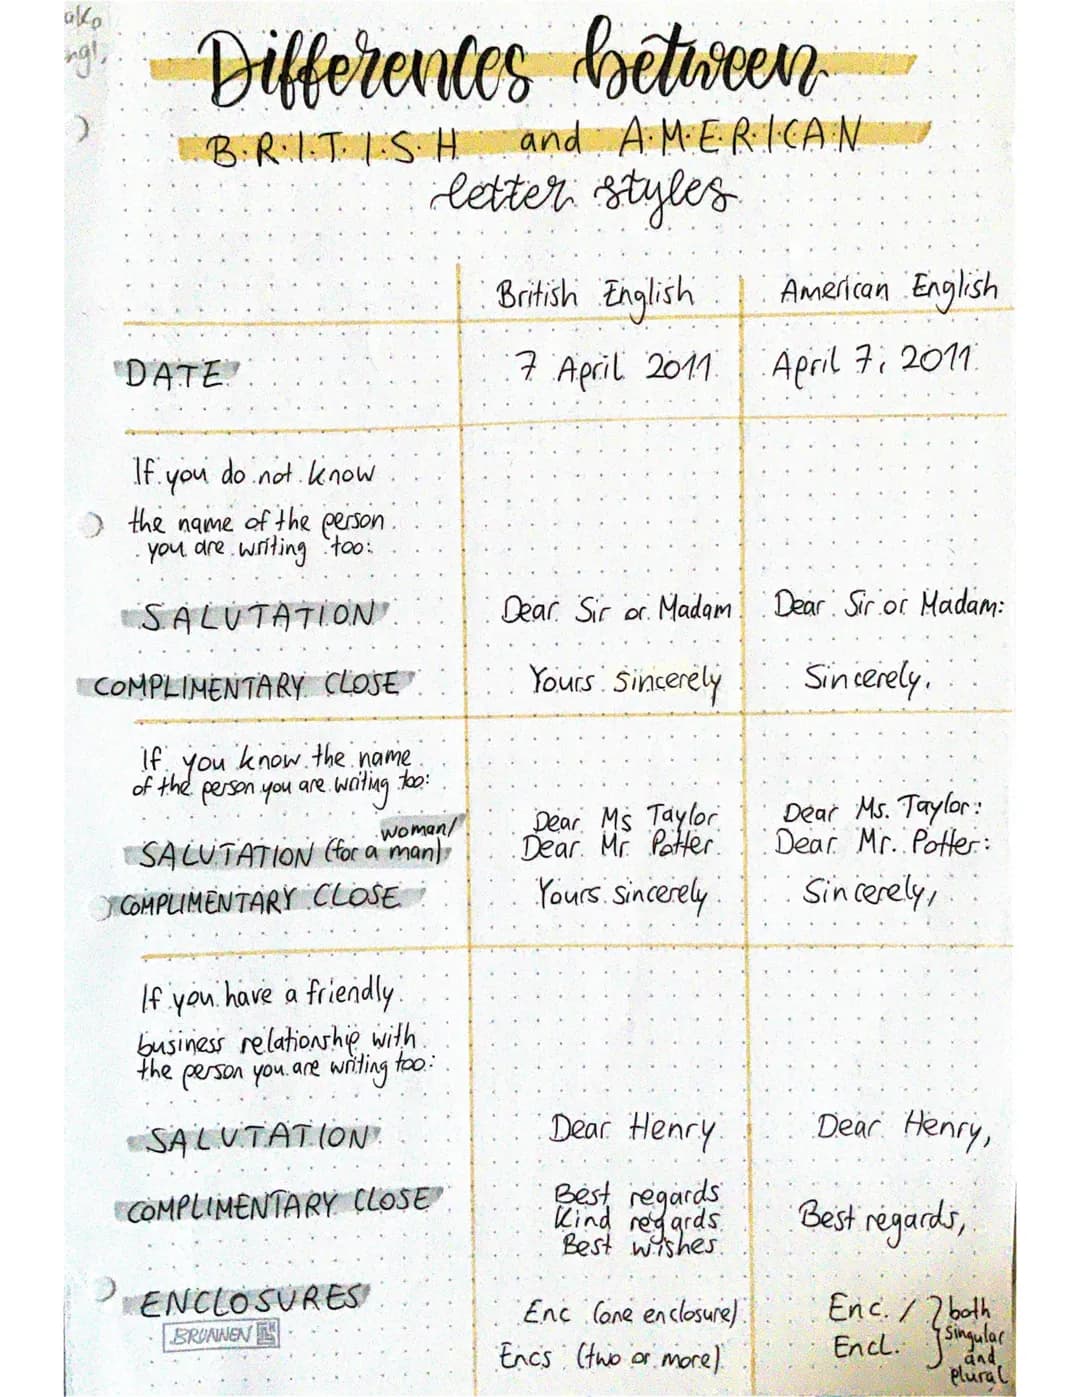 Differences between
BRITISH and AMERICAN
letter styles
British English American English
DATE 7 April 2011 April 7, 2011
If you do not know
the name of the person
you are writing too:
SALUTATION Dear Sir or Madam Dear Sir or Madam:
COMPLIMENTARY CLOSE Yours sincerely Sincerely,
If you know the name
of the person you are writing too:
SALUTATION (for a woman/man) Dear Ms Taylor Dear Ms. Taylor:
Dear Mr Potter Dear Mr. Potter:
COMPLIMENTARY CLOSE Yours sincerely Sincerely,
If you have a friendly
business relationship with
the person you are writing too:
SALUTATION Dear Henry Dear Henry,
COMPLIMENTARY CLOSE Best regards Best regards,
Kind regards
Best wishes
ENCLOSURES Enc (one enclosure) Enc. / both
Encs (two or more) Encl. singular
and
plural
BRUNNEN